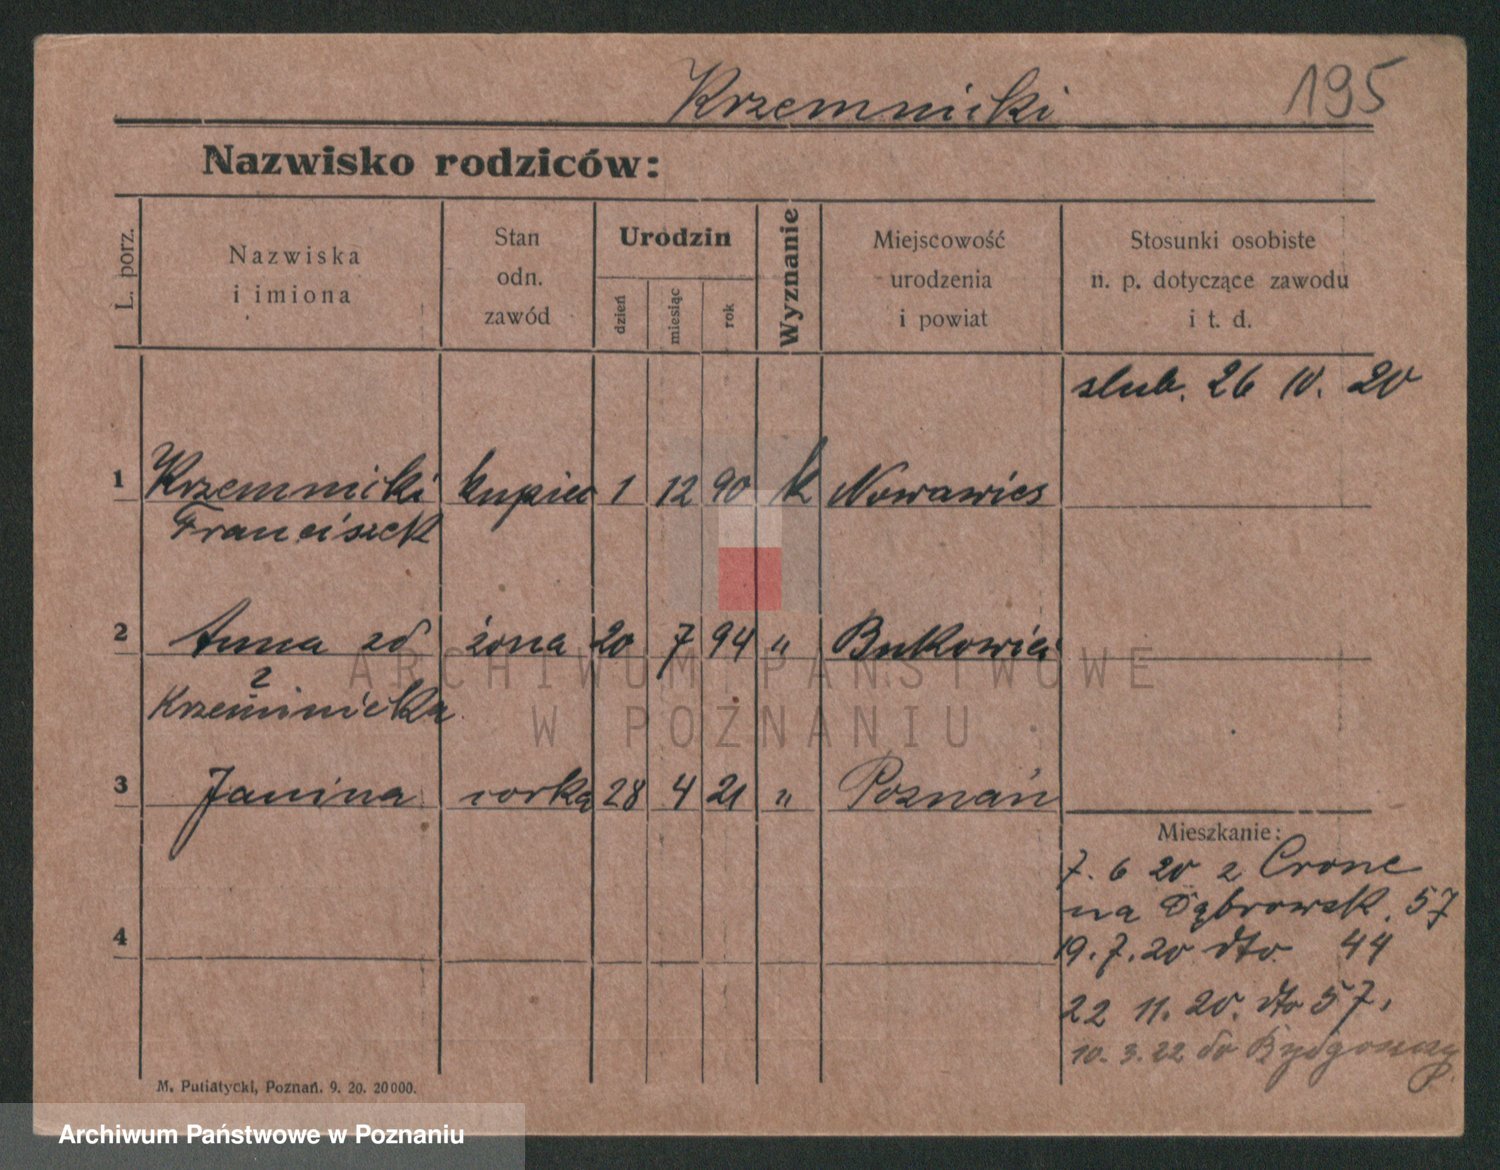 Krzemnicki 195
Nazwisko rodziców:
L. porz.
Nazwiska
i imiona
Stan
odn.
zawód
Urodzin
dzień
miesiąc
rok
Wyznanie
Miejscowość
urodzenia
i powiat
Stosunki osobiste
n. p. dotyczące zawodu
i t. d.
slub. 26 10. 20
1 Krzemnicki kupiec 1 12 90 k Nowawies
Franciszek
2 Anna żona 20 7 94 " Bukowiec
3 Janina corka 28 4 21 " Poznań
Mieszkanie:
7. 6 20 z Crone
na Dąbrowsk. 57
19. 7. 20 dto 44
4
22 11. 20. dto 57.
10. 3. 22 do Bydgoszczy
M. Putiatycki, Poznań. 9. 20. 20000.
ARCHIWUM PAŃSTWOWE
W POZNANIU
Archiwum Państwowe w Poznaniu